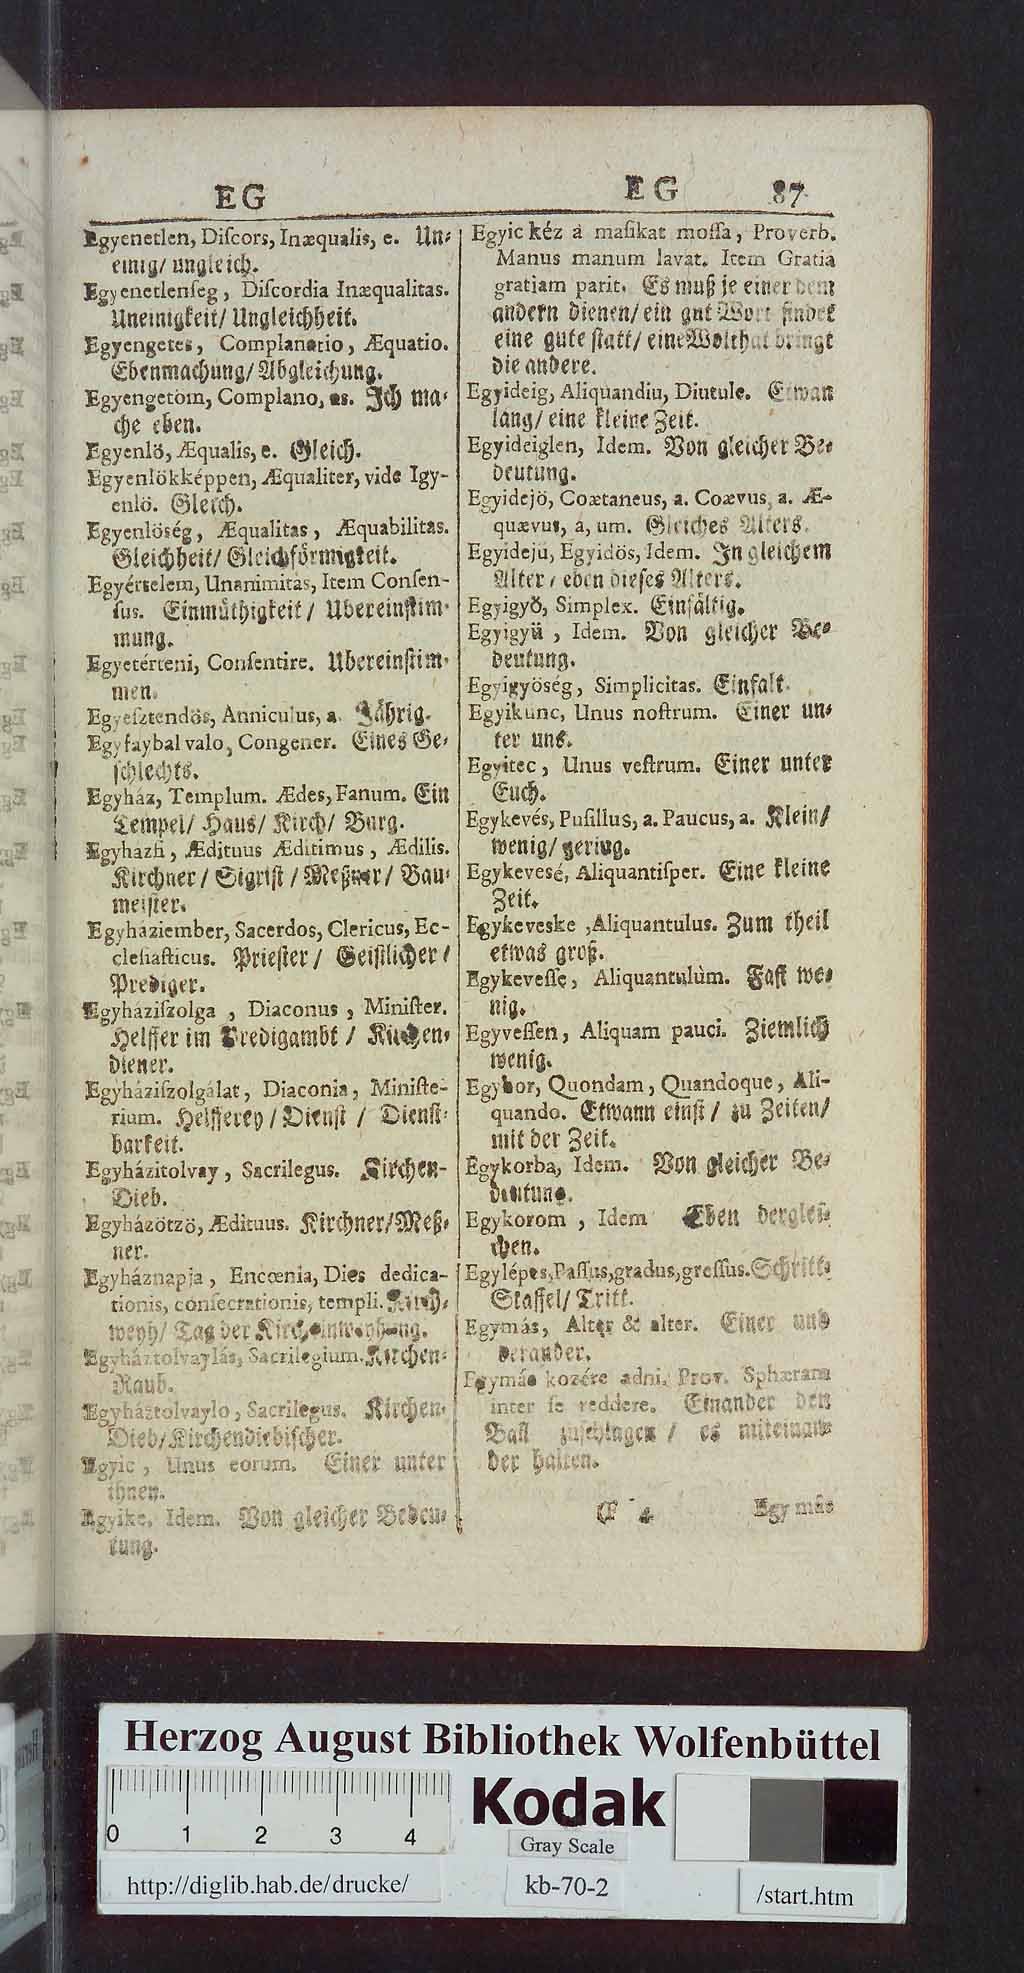 EG
Egyenetlen, Diſcors, Inæqualis, e. Un-
einig/ ungleich.
Egyenetlenſeg, Diſcordia Inæqualitas.
Uneinigkeit/ Ungleichheit.
Egyengetes, Complanatio, Æquatio.
Ebenmachung/ Abgleichung.
Egyengetöm, Complano, as. Ich ma-
che eben.
Egyenlö, Æqualis, e. Gleich.
Egyenlökképpen, Æqualiter, vide Igy-
enlö. Gleich.
Egyenlöség, Æqualitas, Æquabilitas.
Gleichheit/ Gleichförmigkeit.
Egyértelem, Unanimitas, Item Conſen-
ſus. Einmüthigkeit/ Ubereinſtim-
mung.
Egyetérteni, Conſentire. Ubereinſtim-
men.
Egyeſztendös, Anniculus, a. Jährig.
Egyfaybal valo, Congener. Eines Ge-
ſchlechts.
Egyház, Templum. Ædes, Fanum. Ein
Tempel/ Haus/ Kirch/ Burg.
Egyhazfi, Ædituus Æditimus, Ædilis.
Kirchner/ Sigriſt/ Meßner/ Bau-
meiſter.
Egyháziember, Sacerdos, Clericus, Ec-
cleſiaſticus. Prieſter/ Geiſtlicher/
Prediger.
Egyháziſzolga, Diaconus, Miniſter.
Helffer im Predigambt/ Kirchen-
diener.
Egyháziſzolgálat, Diaconia, Miniſte-
rium. Helfferey/ Dienſt/ Dienſt-
barkeit.
Egyházitolvay, Sacrilegus. Kirchen-
Dieb.
Egyházötzö, Ædituus. Kirchner/Meß-
ner.
Egyháznapja, Encœnia, Dies dedica-
tionis, conſecrationis, templi. Kirch-
weyh/ Tag der Kircheinweyhung.
Egyháztolvaylás, Sacrilegium. Kirchen-
Raub.
Egyháztolvaylo, Sacrilegus. Kirchen-
Dieb/ Kirchendiebiſcher.
Egyic, Unus eorum. Einer unter
ihnen.
Egyike, Idem. Von gleicher Bedeu-
tung.
EG 87
Egyic kéz à maſikat moſſa, Proverb.
Manus manum lavat. Item Gratia
gratiam parit. Es muß je einer dem
andern dienen/ ein gut Wort findet
eine gute ſtatt/ eine Wolthat bringt
die andere.
Egyideig, Aliquandiu, Diutule. Etwan
lang/ eine kleine Zeit.
Egyideiglen, Idem. Von gleicher Be-
deutung.
Egyidejö, Coætaneus, a. Coævus, a. Æ-
quævus, a, um. Gleiches Alters.
Egyidejü, Egyidös, Idem. In gleichem
Alter/ eben dieſes Alters.
Egyigyö, Simplex. Einfältig.
Egyigyü, Idem. Von gleicher Be-
deutung.
Egyigyöség, Simplicitas. Einfalt.
Egyikünc, Unus noſtrum. Einer un-
ter uns.
Egyitec, Unus veſtrum. Einer unter
Euch.
Egykevés, Puſillus, a. Paucus, a. Klein/
wenig/ gering.
Egykevesé, Aliquantiſper. Eine kleine
Zeit.
Egykeveske, Aliquantulus. Zum theil
etwas groß.
Egykeveſſe, Aliquantulùm. Faſt we-
nig.
Egyveſſen, Aliquam pauci. Ziemlich
wenig.
Egykor, Quondam, Quandoque, Ali-
quando. Etwann einſt/ zu Zeiten/
mit der Zeit.
Egykorba, Idem. Von gleicher Be-
deutung.
Egykorom, Idem Eben derglei-
chen.
Egylépes, Paſſus, gradus, greſſus. Schritt-
Staffel/ Tritt.
Egymás, Alter & alter. Einer und
derander.
Egymás kozére adni, Prov. Sphæram
inter ſe reddere. Einander den
Ball zuſchlagen/ es miteinan-
der halten.
Egymás
Herzog August Bibliothek Wolfenbüttel
0 1 2 3 4
Kodak
Gray Scale
http://diglib.hab.de/drucke/
kb-70-2
/start.htm